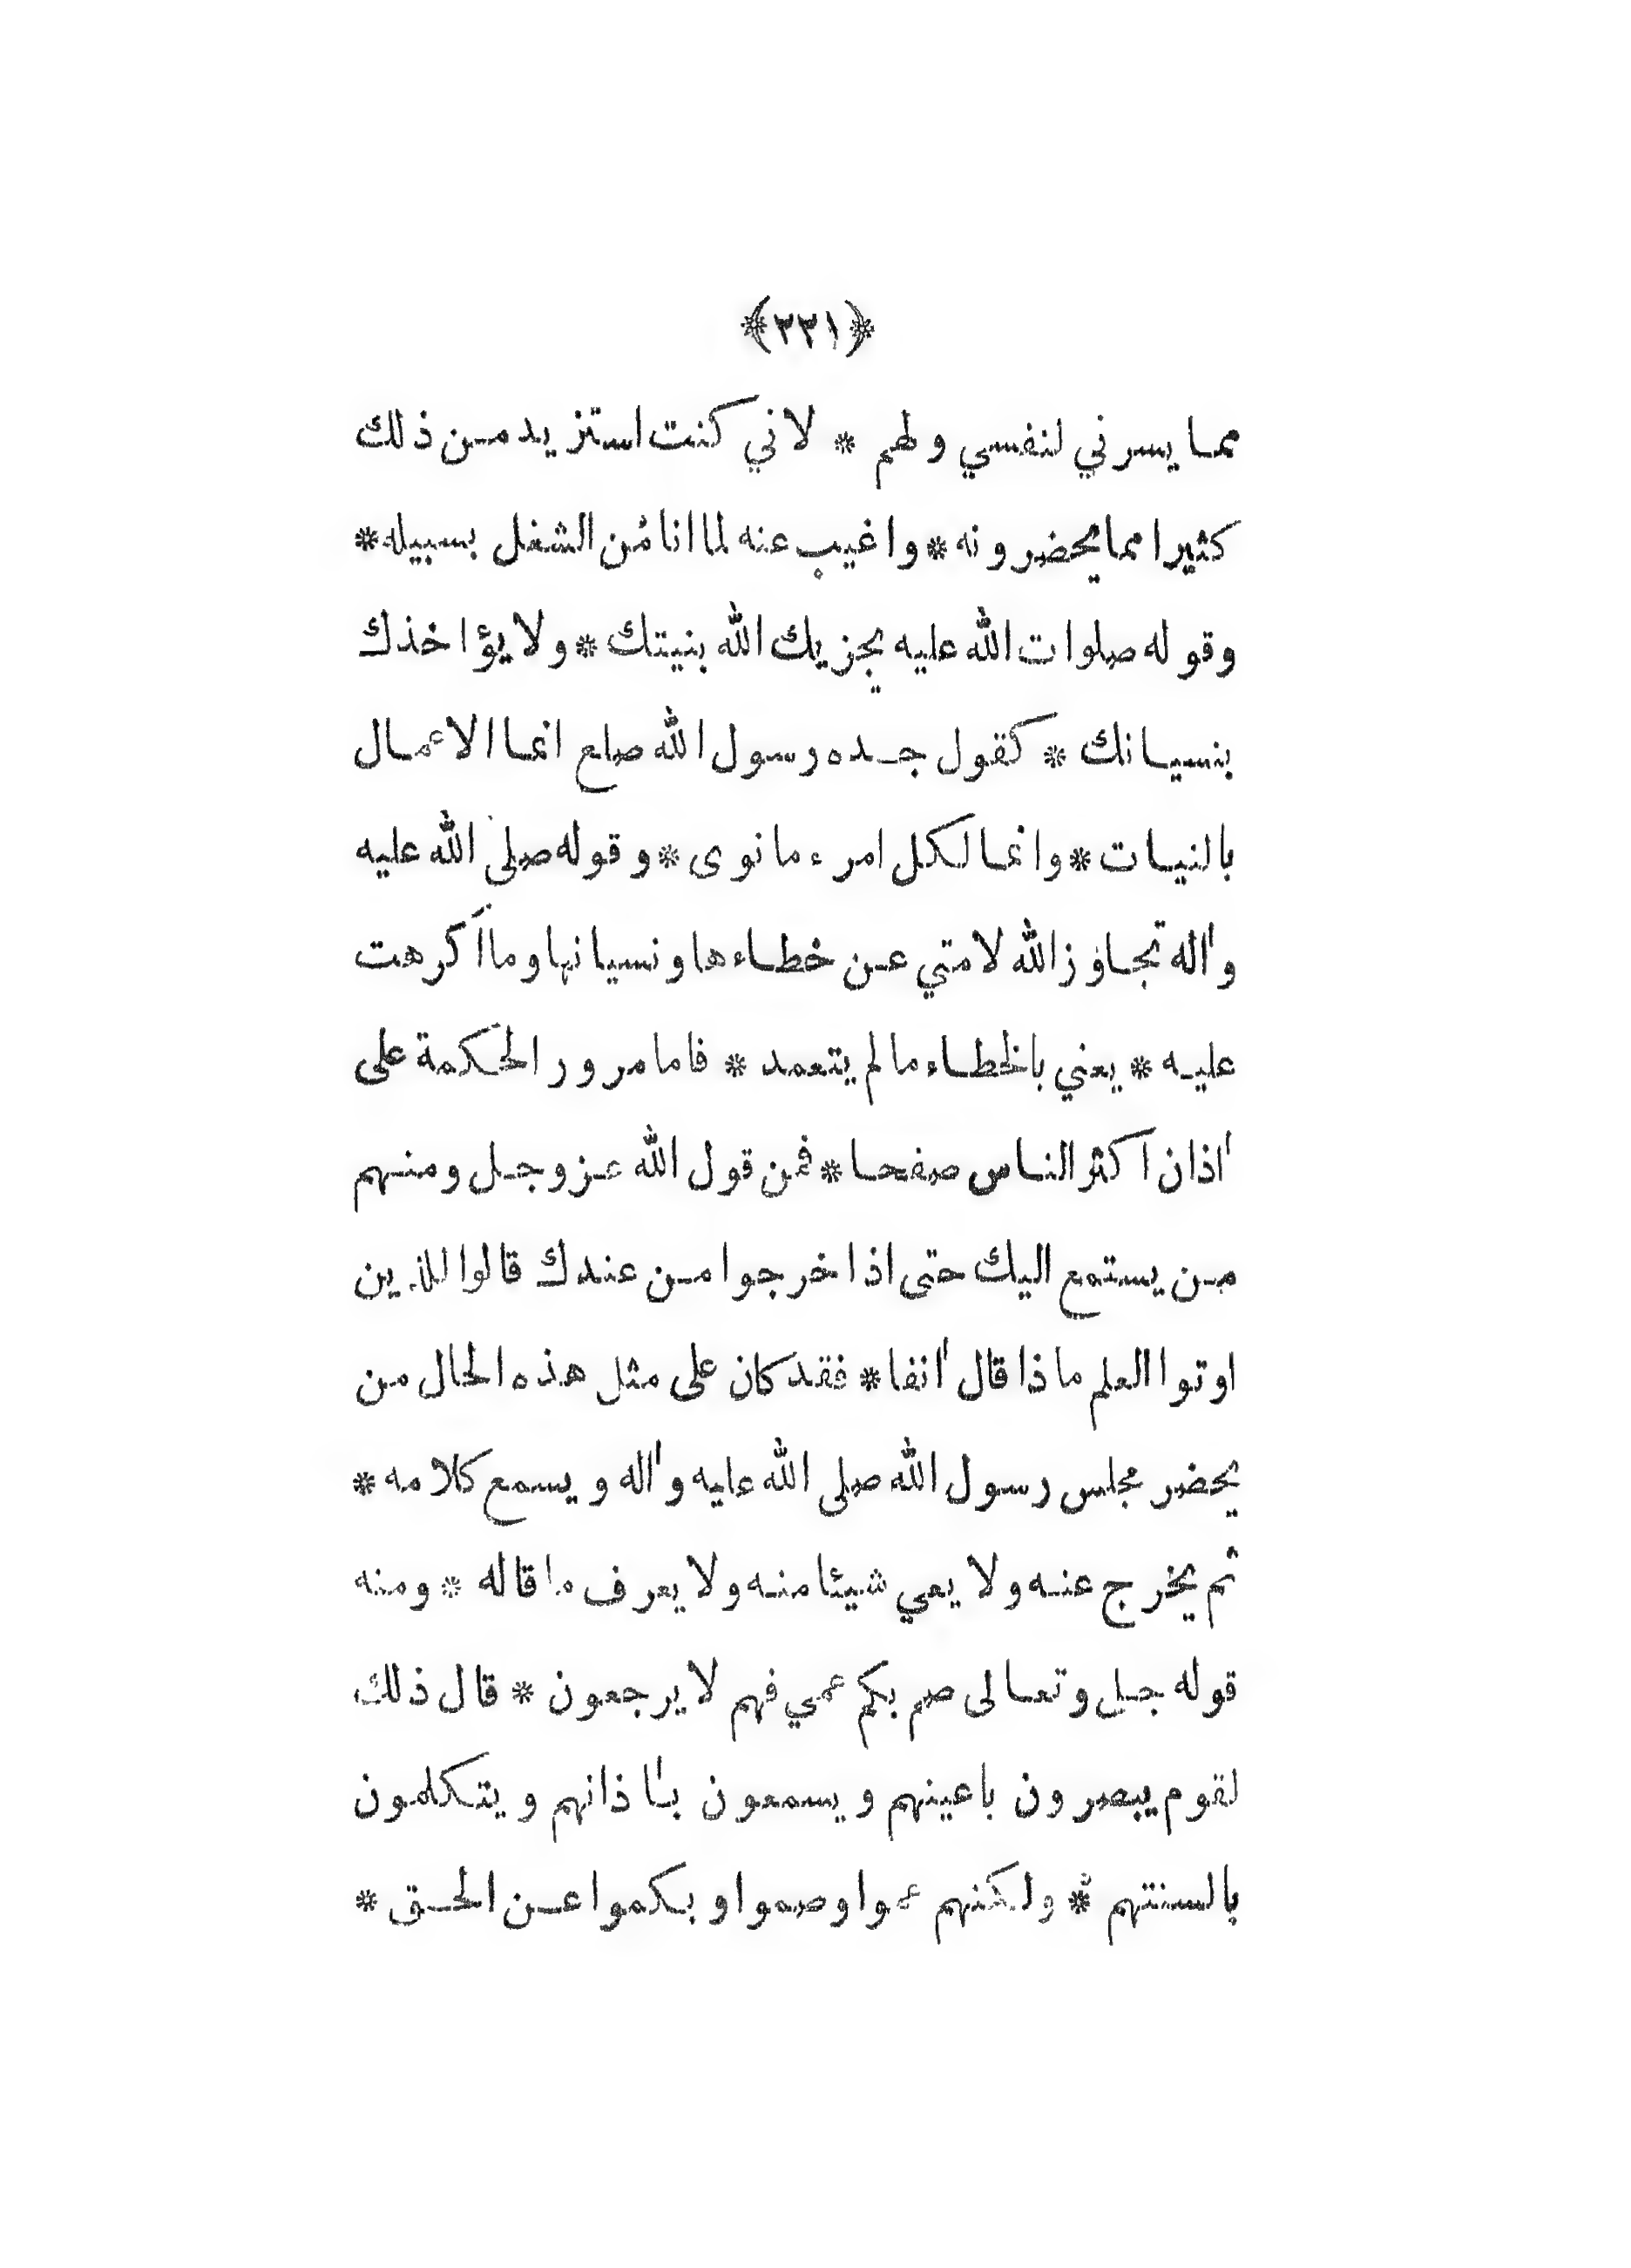 ﴿١٣٣﴾
مما يسرني لنفسي ولهم * لاني كنت استزيد من ذلك
كثيرا مما يحضرونه * واغيب عنه لما انا من الشغل بسبيله *
وقوله صلوات الله عليه يجزيك الله بنيتك * ولا يؤاخذك
بنسيانك * كقول جده رسول الله صلع انما الاعمال
بالنيات * وانما لكل امرء ما نوى * وقوله صلى الله عليه
واٰله تجاوز الله لامتي عن خطاءها ونسيانها وما اكرهت
عليه * يعني بالخطاء ما لم يتعمد * فاما مرور الحكمة على
اٰذان اكثر الناس صفحا * فمن قول الله عز وجل ومنهم
من يستمع اليك حتى اذا خرجوا من عندك قالوا للذين
اوتوا العلم ماذا قال اٰنفا * فقد كان على مثل هذه الحال من
يحضر مجلس رسول الله صلى الله عليه واٰله ويسمع كلامه *
ثم يخرج عنه ولا يعي شيئا منه ولا يعرف ما قاله * ومنه
قوله جل وتعالى صم بكم عمي فهم لا يرجعون * قال ذلك
لقوم يبصرون باعينهم ويسمعون باٰذانهم ويتكلمون
بالسنتهم * ولكنهم عموا وصموا وبكموا عن الحق *